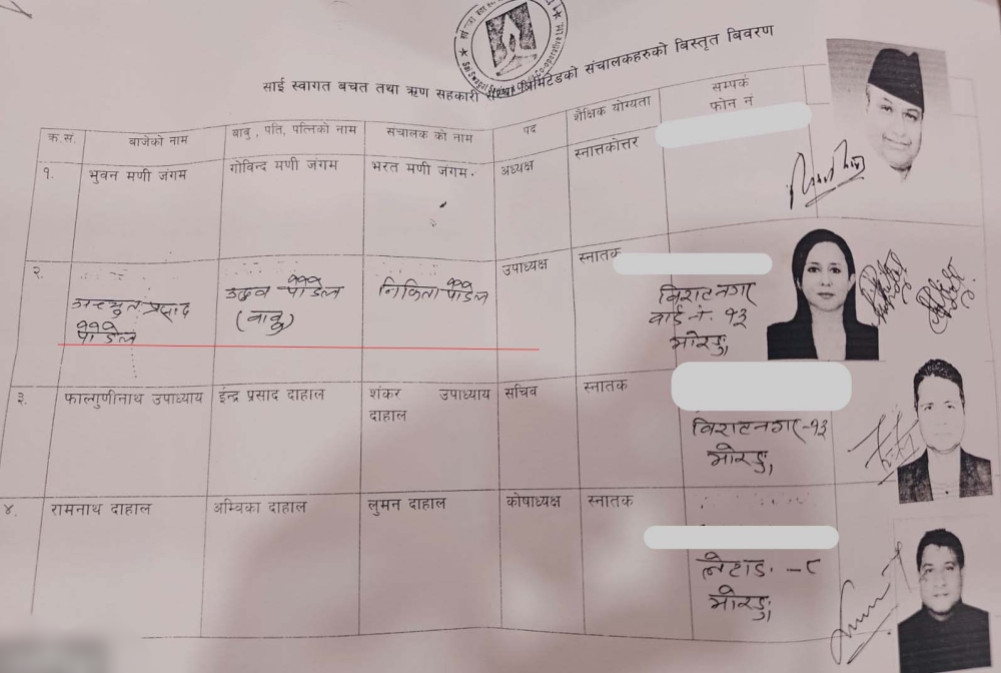 साई स्वागत बचत तथा ऋण सहकारी संस्था लिमिटेडको संचालकहरुको विस्तृत विवरण
क्र.सं. बाजेको नाम बाबु, पति, पत्निको नाम संचालक को नाम पद शैक्षिक योग्यता सम्पर्क फोन नं
१. भुवन मणी जंगम गोविन्द मणी जंगम भरत मणी जंगम. अध्यक्ष स्नात्तकोत्तर
२. प्रसाद पौडेल उद्धव पौडेल (बाबु) निकिता पौडेल उपाध्यक्ष स्नातक
विराटनगर
वार्ड नं. १३
मोरङ
३. फाल्गुणीनाथ उपाध्याय इन्द्र प्रसाद दाहाल शंकर उपाध्याय दाहाल सचिव स्नातक
विराटनगर-१३
मोरङ
४. रामनाथ दाहाल अम्बिका दाहाल लुमन दाहाल कोषाध्यक्ष स्नातक
लेटाङ -८
मोरङ